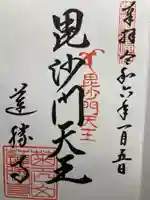 奉拝 令和六年一月五日
毘沙門天王
毘沙門天王
蓮勝寺